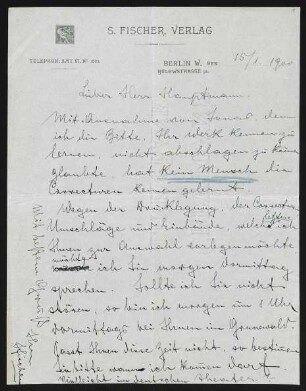 S. FISCHER, VERLAG
TELEPHON: AMT VI, Nº
BERLIN W., DEN 15/1. 1900
BÜLOWSTRASSE
Lieber Herr Hauptmann.
Mit Ausnahme von dem
ich die Bitte, Ihr Werk kennen zu
lernen, nicht abschlagen zu können
glaubte, hat kein Mensch die
Correcturen kennen gelernt.
Wegen der Drucklegung, der
Umschläge und Einbände, welche ich
Ihnen zur Auswahl vorlegen möchte
möchte ich Sie morgen Vormittag
sprechen. Sollte ich Sie nicht
stören, so bin ich morgen um Uhr
Vormittags bei Ihnen im Grunewald.
Passt Ihnen diese Zeit nicht, so bestimmen
Sie bitte wann ich kommen darf.
Vielleicht im deutschen Theater.
Mit besten Gruß
Ihr
Fischer